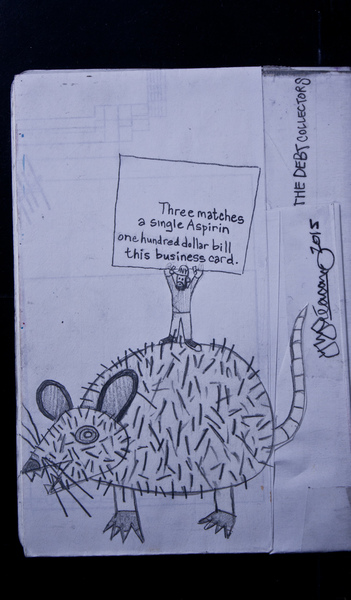 Three matches
a single Aspirin
one hundred dollar bill
this business card.
THE DEBT COLLECTORS
2015